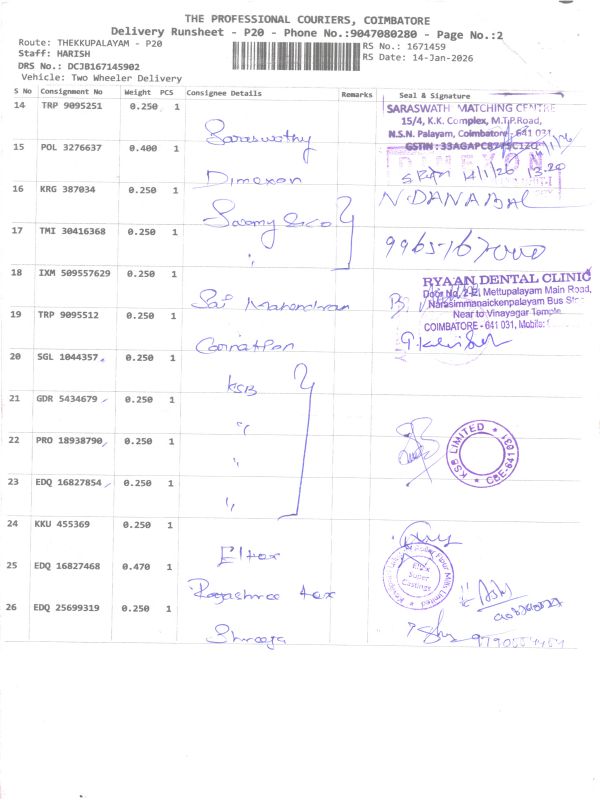 THE PROFESSIONAL COURIERS, COIMBATORE
Delivery Runsheet - P20 - Phone No.:9047080280 - Page No.:2
Route: THEKKUPALAYAM - P20
Staff: HARISH
RS No.: 1671459
RS Date: 14-Jan-2026
DRS No.: DCJB167145902
Vehicle: Two Wheeler Delivery
S No Consignment No Weight PCS Consignee Details Remarks Seal & Signature
14 TRP 9095251 0.250 1 Saraswathy
SARASWATH MATCHING CENTRE
15/4, K.K. Complex, M.T.P.Road,
N.S.N. Palayam, Coimbatore - 641 031
GSTIN : 33AGAPC8775C1ZQ
15 POL 3276637 0.400 1 Dimexon
DIMEXON
14/1/26 13.20
16 KRG 387034 0.250 1 Swamy & co
N. DANABAL
17 TMI 30416368 0.250 1 "
18 IXM 509557629 0.250 1 Sai Mahendran
RYAAN DENTAL CLINIC
Door No. 2-E, Mettupalayam Main Road,
Narasimmanaickenpalayam Bus St
Near to Vinayagar Temple
COIMBATORE - 641 031, Mobile:
19 TRP 9095512 0.250 1
20 SGL 1044357 0.250 1 KSB
21 GDR 5434679 0.250 1 "
22 PRO 18938790 0.250 1 "
KSB LIMITED
CBE-641 031
23 EDQ 16827854 0.250 1 "
24 KKU 455369 0.250 1 Eltex
25 EDQ 16827468 0.470 1 Rajashree tex
Eltex
Super
Castings
26 EDQ 25699319 0.250 1 Shreeja